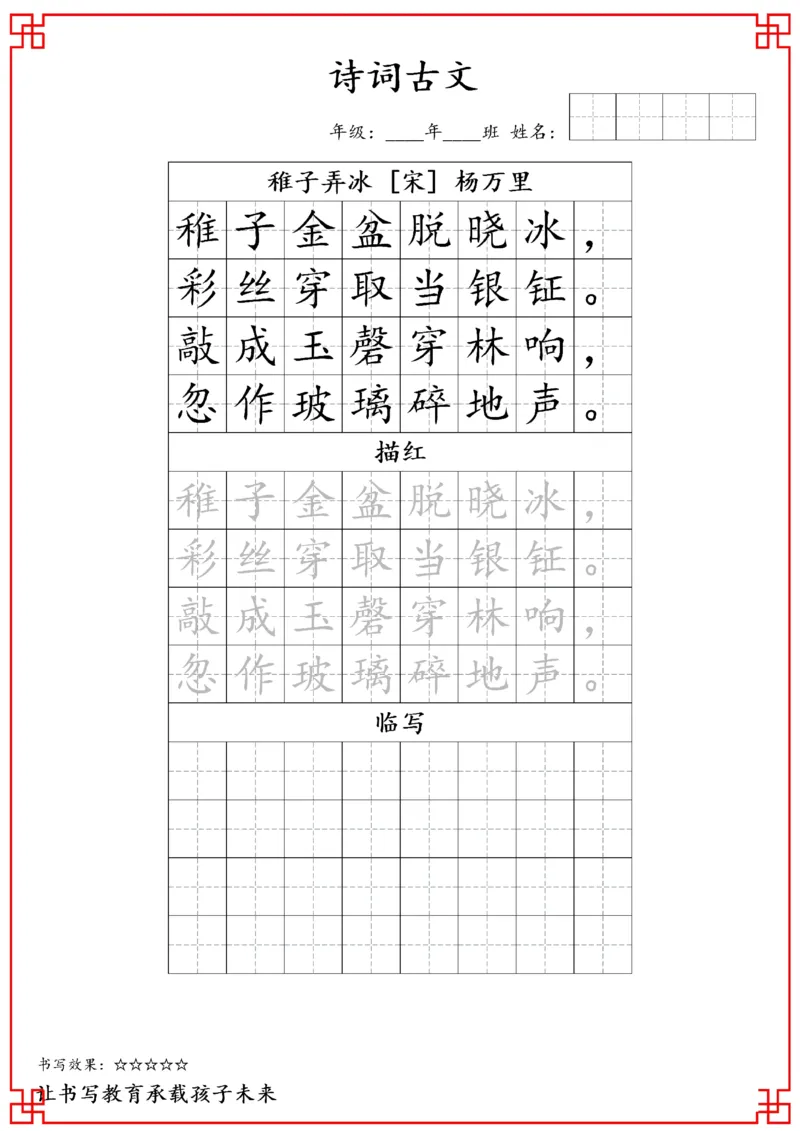 诗词古文
年级：____年____班 姓名：
稚子弄冰［宋］杨万里
稚子金盆脱晓冰，
彩丝穿取当银钲。
敲成玉磬穿林响，
忽作玻璃碎地声。
描红
稚子金盆脱晓冰，
彩丝穿取当银钲。
敲成玉磬穿林响，
忽作玻璃碎地声。
临写
书写效果：☆☆☆☆☆
让书写教育承载孩子未来